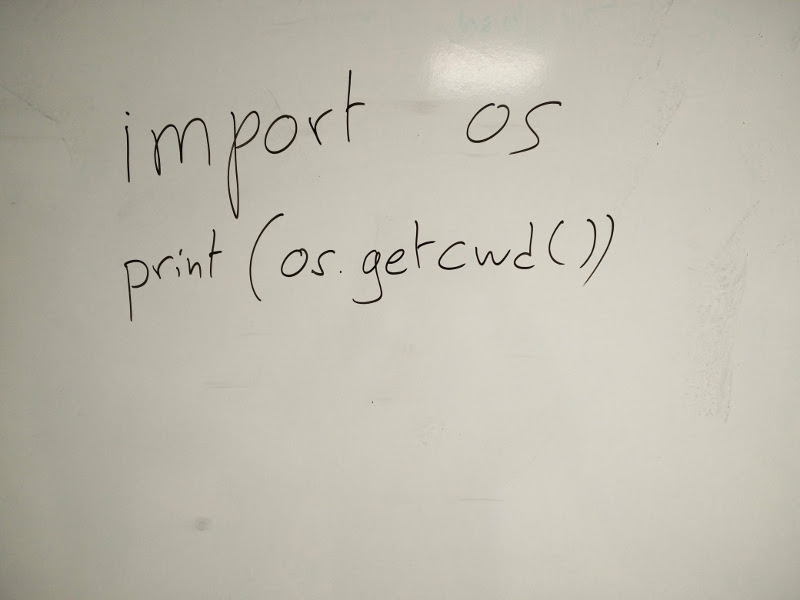 import os
print(os.getcwd())